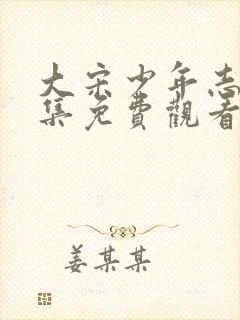 大宋少年志
集免費觀看
姜某某